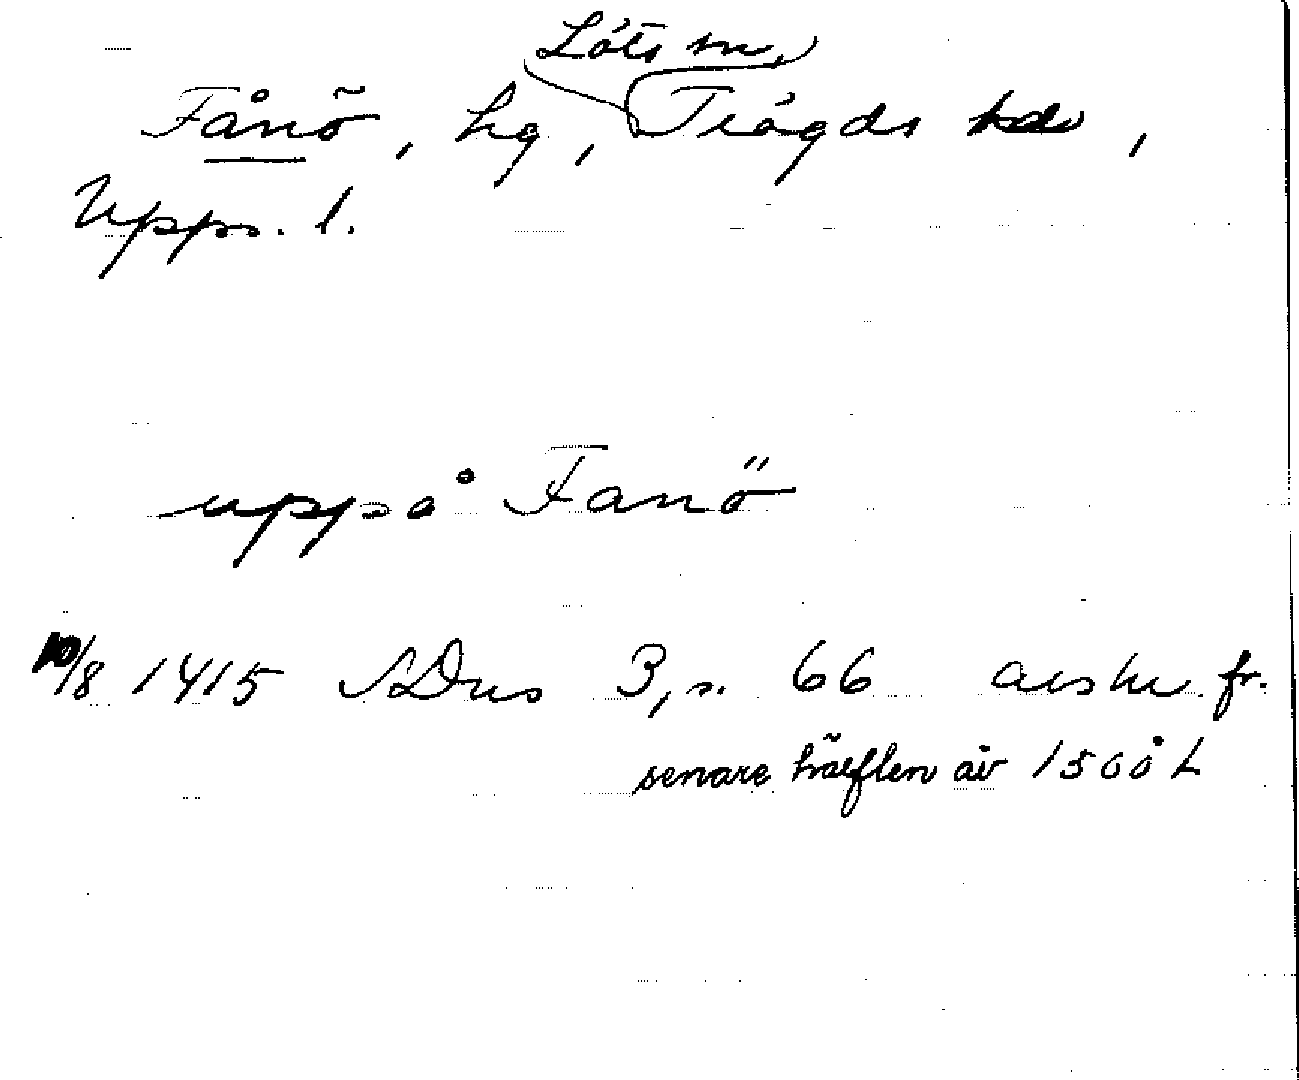 Löts sn,
Fånö, hg, Trögds hd,
Upps. l.
uppå Fanö
10/8 1415 SDns 3, s. 66 avskr. fr.
senare hälften av 1500 t